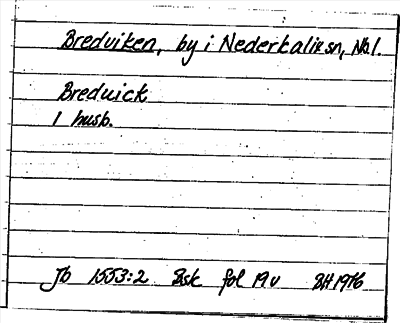 Bredviken, by i Nederkalix sn, Nbl.
Breduick
1 husb.
Jb 1553:2 Bsk fol 19v BH 1976